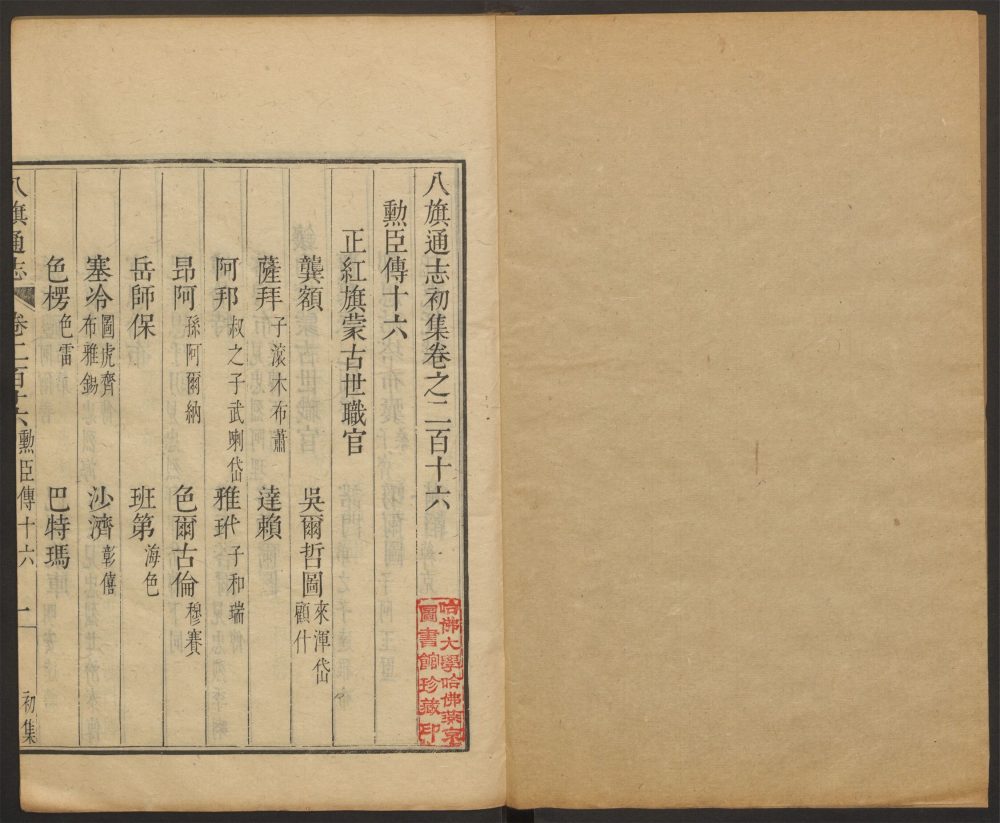 八旗通志初集卷之二百十六
勲臣傳十六
正紅旗蒙古世職官
龔額 吳爾哲圖 來渾岱 顧什
薩拜 子滾木布蕭 達賴
阿邦 叔之子武喇岱 雅玳 子和瑞
昂阿 孫阿爾納 色爾古倫 穆賽
岳師保 班第 海色
塞冷 圖虎齊 布雅錫 沙濟 彰僖
色楞 色雷 巴特瑪
八旗通志 卷二百十六 勲臣傳十六 一 初集
哈佛大學哈佛燕京
圖書館珍藏印